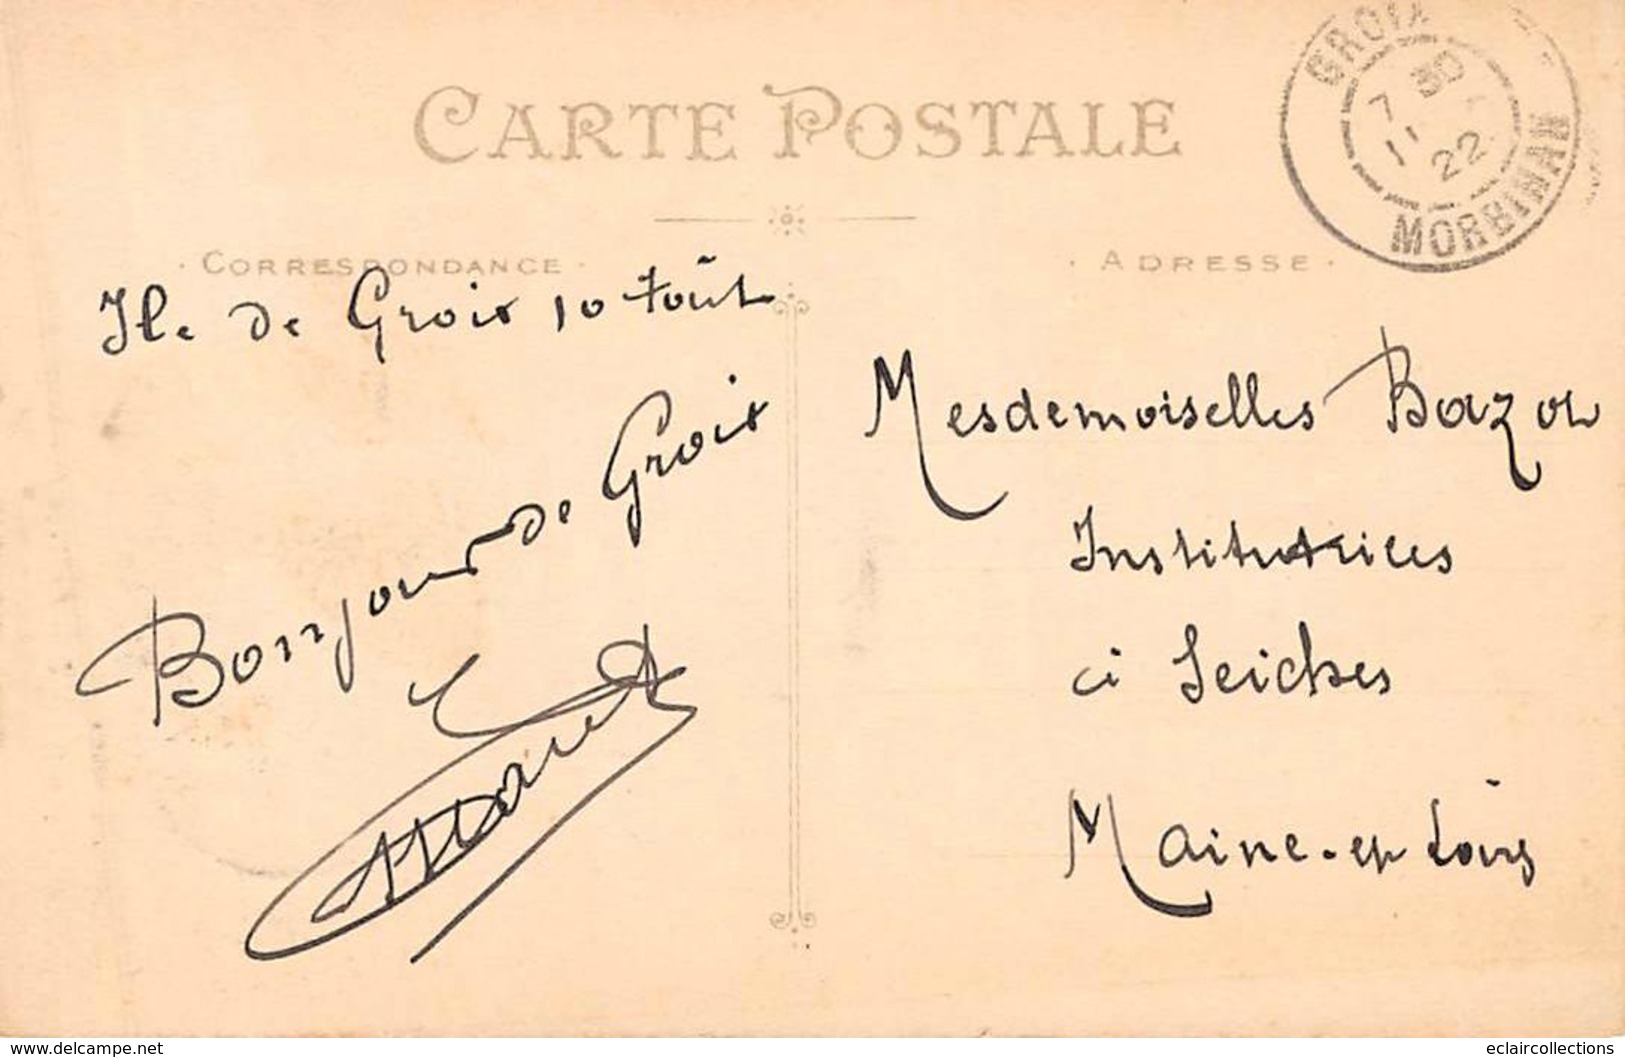 CARTE POSTALE
CORRESPONDANCE
ADRESSE
GROIX
7 30
11
22
MORBIHAN
Ile de Groix 10 Août
Bonjour de Groix
Mesdemoiselles
Institutrices
à Seiches
Maine-et-Loire
www.delcampe.net
eclaircollections